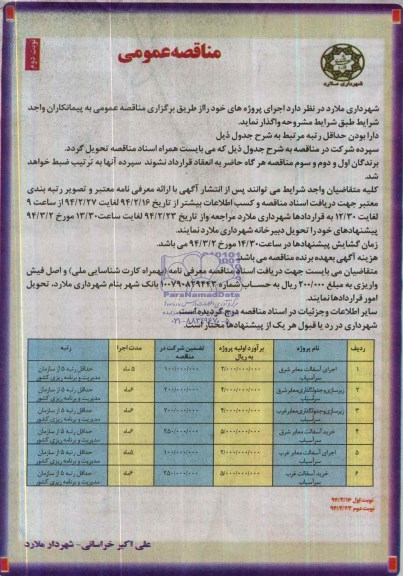 نوبت دوم
مناقصه عمومی
شهرداری ملارد
شهرداری ملارد در نظر دارد اجرای پروژه های خود رااز طریق برگزاری مناقصه عمومی به پیمانکاران واجد
شرایط طبق شرایط مشروحه واگذار نماید.
دارا بودن حداقل رتبه مرتبط به شرح جدول ذیل
سپرده شرکت در مناقصه به شرح جدول ذیل که می بایست همراه اسناد مناقصه تحویل گردد.
برندگان اول و دوم و سوم مناقصه هر گاه حاضر به انعقاد قرارداد نشوند سپرده آنها به ترتیب ضبط خواهد
شد.
کلیه متقاضیان واجد شرایط می توانند پس از انتشار آگهی با ارائه معرفی نامه معتبر و تصویر رتبه بندی
معتبر جهت دریافت اسناد مناقصه و کسب اطلاعات بیشتر از تاریخ ۹۴/۲/۱۶ لغایت ۹۴/۲/۲۷ از ساعت ۹
لغایت ۱۲/۳۰ به قراردادها شهرداری ملارد مراجعه واز تاریخ ۹۴/۲/۲۳ لغایت ساعت۱۳/۳۰ مورخ ۹۴/۳/۲
پیشنهادهای خود را تحویل دبیرخانه شهرداری ملارد نمایند.
زمان گشایش پیشنهادها در ساعت۱۴/۳۰ مورخ ۹۴/۳/۲ می باشد.
هزینه آگهی بعهده برنده مناقصه می باشد.
متقاضیان می بایست جهت دریافت اسناد مناقصه معرفی نامه (بهمراه کارت شناسایی ملی) و اصل فیش
واریزی به مبلغ ۲۰۰/۰۰۰ ریال به حساب شماره ۱۰۰۷۹۰۸۲۹۴۴۳ بانک شهر بنام شهرداری ملارد، تحویل
امور قراردادها نمایند.
سایر اطلاعات وجزئیات در اسناد مناقصه درج گردیده است.
شهرداری در رد یا قبول هر یک از پیشنهادها مختار است.
ParsNamadData
۰۲۱-۸۸۳۴۹۶۷۰
ردیف نام پروژه برآورد اولیه پروژه به ریال تضمین شرکت در مناقصه مدت اجرا رتبه
۱ اجرای آسفالت معابر شرق سرآسیاب ۲/۰۰۰/۰۰۰/۰۰۰ ۱۰۰/۰۰۰/۰۰۰ ۵ ماه حداقل رتبه ۵ از سازمان مدیریت و برنامه ریزی کشور
۲ زیرسازی و جدولگذاری معابر شرق سرآسیاب ۴/۰۰۰/۰۰۰/۰۰۰ ۲۰۰/۰۰۰/۰۰۰ ۶ماه حداقل رتبه ۵ از سازمان مدیریت و برنامه ریزی کشور
۳ زیرسازی و جدولگذاری معابر غرب سرآسیاب ۴/۰۰۰/۰۰۰/۰۰۰ ۲۰۰/۰۰۰/۰۰۰ ۶ماه حداقل رتبه ۵ از سازمان مدیریت و برنامه ریزی کشور
۴ خرید آسفالت معابر شرق سرآسیاب ۵/۰۰۰/۰۰۰/۰۰۰ ۲۵۰/۰۰۰/۰۰۰ ۶ماه حداقل رتبه ۵ از سازمان مدیریت و برنامه ریزی کشور
۵ اجرای آسفالت معابر غرب سرآسیاب ۲/۰۰۰/۰۰۰/۰۰۰ ۱۰۰/۰۰۰/۰۰۰ ۵ماه حداقل رتبه ۵ از سازمان مدیریت و برنامه ریزی کشور
۶ خرید آسفالت غرب سرآسیاب ۵/۰۰۰/۰۰۰/۰۰۰ ۲۵۰/۰۰۰/۰۰۰ ۶ماه حداقل رتبه ۵ از سازمان مدیریت و برنامه ریزی کشور
نوبت اول ۹۴/۲/۱۶
نوبت دوم ۹۴/۲/۲۳
علی اکبر خراسانی- شهردار ملارد